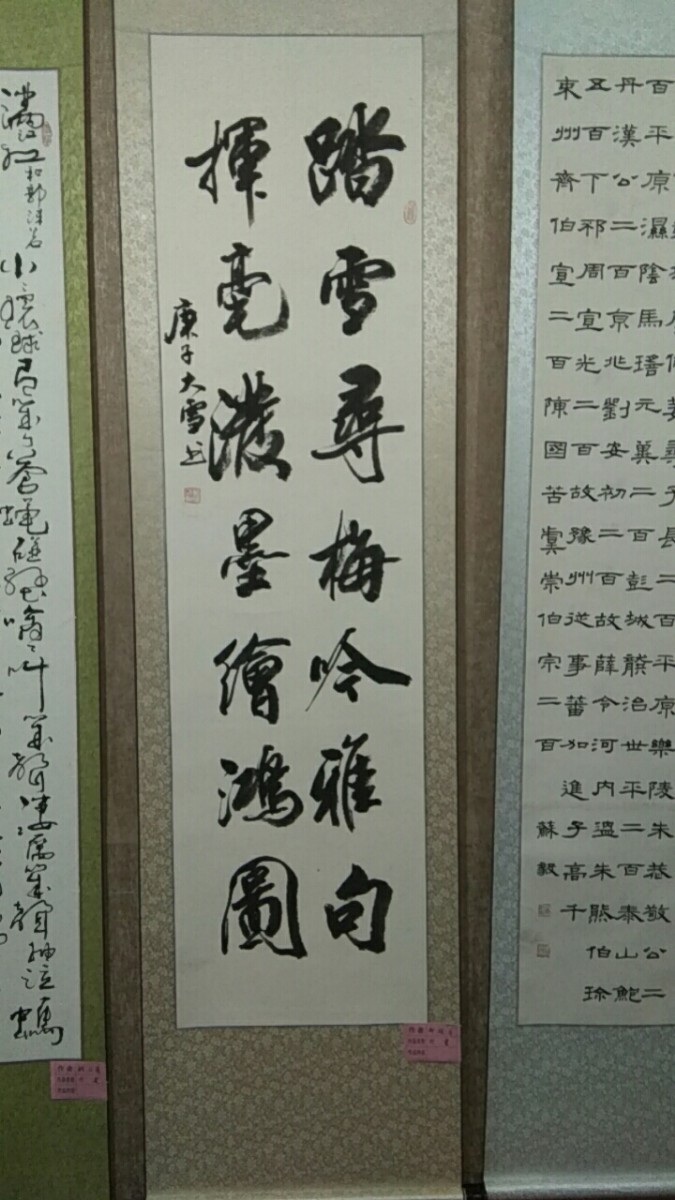 長二百平原樂陵朱恭敬公二
百平原濕陰馬瑤元冀二百彭城龔治世平二百泰山鮑
丹漢公二百京兆劉安初二百故薛令河內溫朱熊伯珍
五百下邳周宣光二百故豫州從事蕃加進子高千
東州齊伯宣二百陳國苦虞崇伯宗二百
蘇毅
踏雪尋梅吟雅句
揮毫潑墨繪鴻圖
庚子大雪書
滿江紅 和郭沫若
小小寰球有幾個蒼蠅碰壁嗡嗡叫幾聲淒厲幾聲抽泣螞